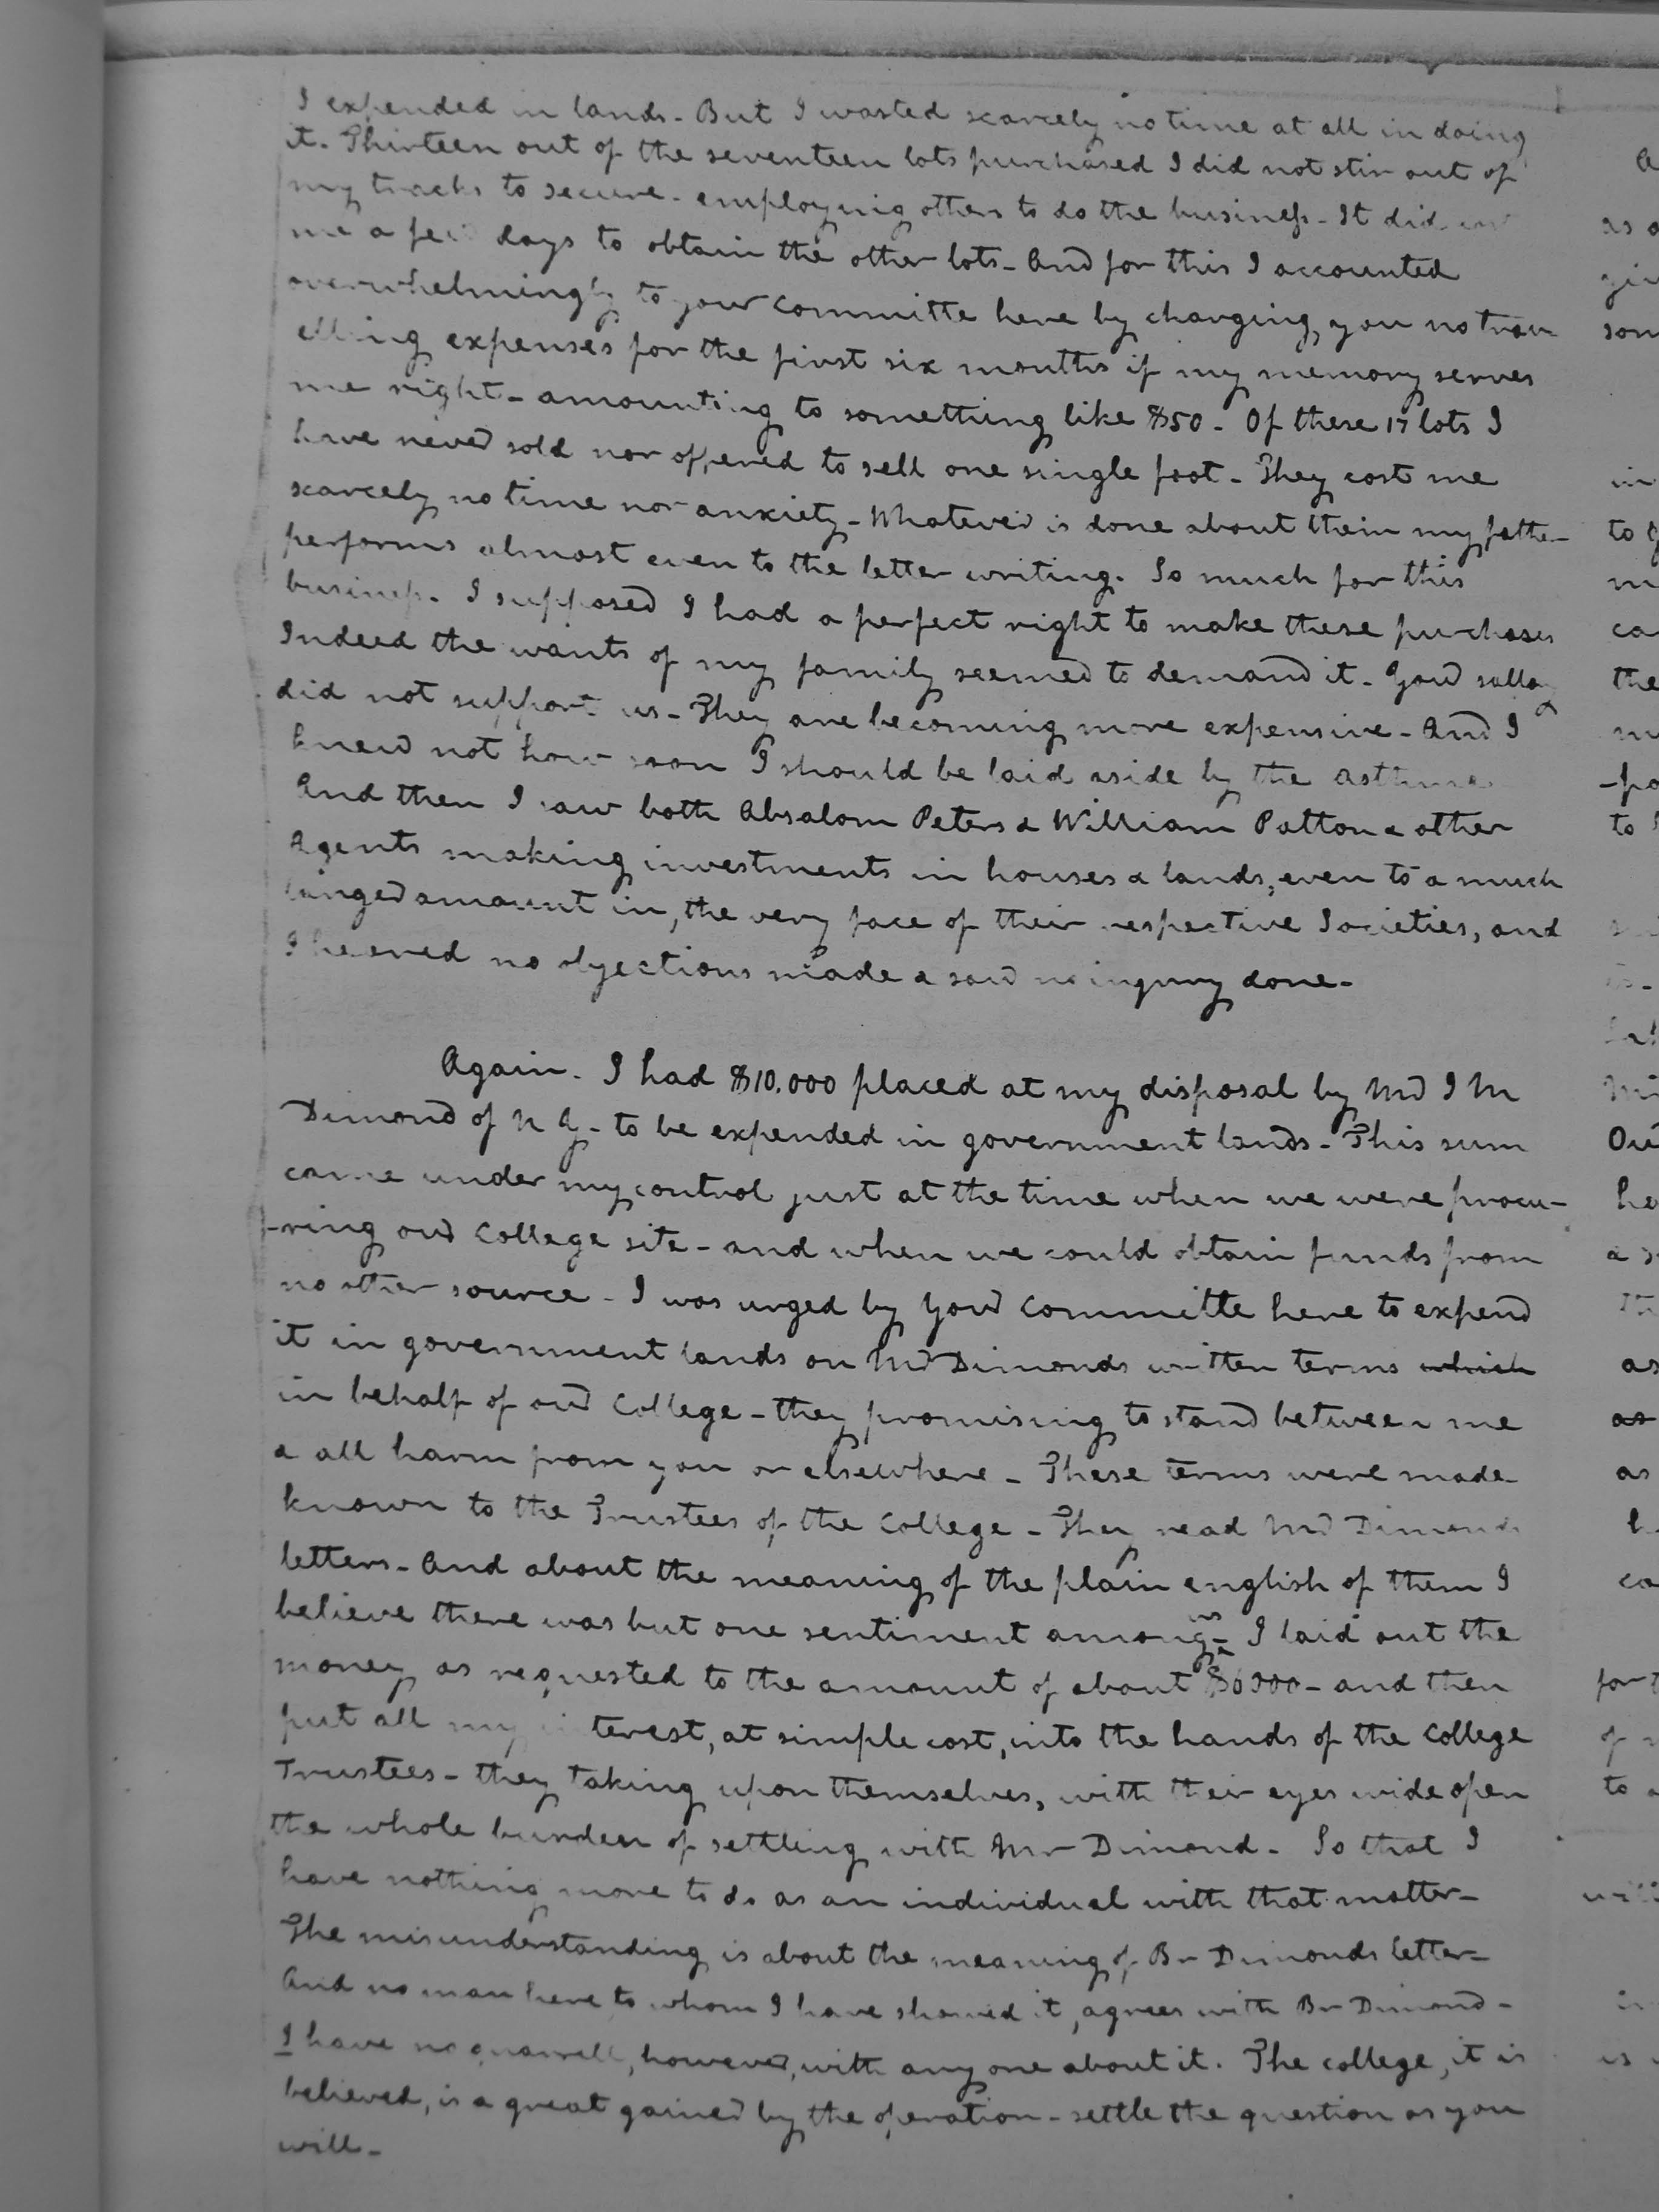 I expended in lands - But I wasted scarcely no time at all in doing
it. Thirteen out of the seventeen lots purchased I did not stir out of
my tracks to secure - employing others to do the business - It did
me a few days to obtain the other lots - And for this I accounted
overwhelmingly to your committe here by charging you no trav
elling expenses for the first six months if my memory serves
me right - amounting to something like $50 - Of these 17 lots I
have never sold nor offered to sell one single foot - They cost me
scarcely no time nor anxiety - Whatever is done about them my father
performs almost even to the letter writing. So much for this
business. I supposed I had a perfect right to make these purchases
Indeed the wants of my family seemed to demand it - Your sallary
did not support us - They are becoming more expensive - And I
knew not how soon I should be laid aside by the Asthma
And then I saw both Absalom Peters & William Patton & other
Agents making investments in houses & lands, even to a much
larger amount in, the very face of their respective Societies, and
I heared no objections made & saw no injury done -
Again - I had $10.000 placed at my disposal by Mr I M
Dimond of N Y - to be expended in government lands - This sum
came under my control just at the time when we were procu-
-ring our College site - and when we could obtain funds from
no other source - I was urged by your committe here to expend
it in government lands on Mr Dimonds written terms which
in behalf of our College - they promising to stand between me
& all harm from you or elsewhere - These terms were made
known to the Trustees of the College - They read Mr Dimonds
letters - And about the meaning of the plain english of them I
believe there was but one sentiment among us - I laid out the
money as requested to the amount of about $6000 - and then
put all my interest, at simple cost, into the hands of the College
Trustees - they taking upon themselves, with their eyes wide open
the whole burden of settling with Mr Dimond - So that I
have nothing more to do as an individual with that matter -
The misunderstanding is about the meaning of Br Dimonds letter -
And no man here to whom I have showed it, agrees with Br Dimond -
I have no quarrell, however, with any one about it. The college, it is
believed, is a great gainer by the operation - settle the question as you
will -